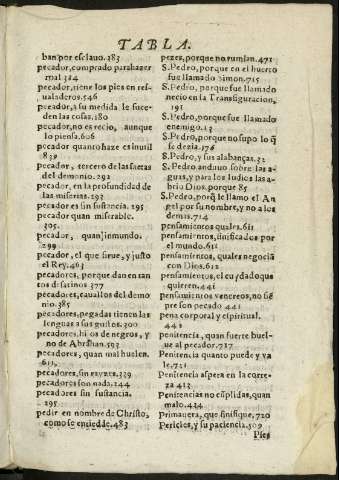 TABLA.
ban por esclavo.383
pecador, comprado para hazer
mal 324
pecador, tiene los pies en res-
valaderos.546
pecador, a su medida le suce-
den las cosas.180
pecador, no es recio, aunque
lo piensa.606
pecador quanto haze es inutil
839
pecador, tercero de las saetas
del demonio.292
pecador, en la profundidad de
las miserias.293
pecador es sin sustancia.295
pecador quan miserable.
305.
pecador, quan inmundo.
299
pecador, el que sirve, y justo
el Rey.463
pecadores, porque dan en san-
tos disatinos 377
pecadores, cavallos del demo
nio.385
pecadores, pegadas tienen las
lenguas a sus gustos.300
pecadores, hijos de negros, y
no de Abrahan.503
pecadores, quan mal huelen.
611.
pecadores, sin rayzes.339
pecadores son nada.144
pecadores sin sustancia.
295
pedir en nombre de Christo,
como se entiende.483
pezes, porque no rumian.471
S. Pedro, porque en el huerto
fue llamado Simon.715
S. Pedro, porque fue llamado
necio en la Transfiguracion,
191
S. Pedro, porque fue llamado
enemigo.13
S. Pedro, porque no supo lo q̃
se dezia.176
S. Pedro, y sus alabanças.32
S. Pedro anduvo sobre las a-
guas, y para los Iudios las a-
brio Dios.porque 85
S. Pedro, porq̃ le llamo el An
gel por su nombre, y no a los
demas.714
pensamientos quales.611
pensamientos, sinificados por
el mundo.611
pensamientos, quales negociã
con Dios.612
pensamientos, el cuydado que
quieren.441
pensamientos venereos, no siẽ
pre son pecado 441
pena corporal y espiritual.
441
penitencia, quan fuerte buel-
ue al pecador.717
Penitencia quanto puede y va
le.721
Penitencia aspera en la corte-
za 413
Penitencias no cũplidas, quan
malo.434
Primavera, que sinifique.720
Pericles, y su paciencia.509
Pies